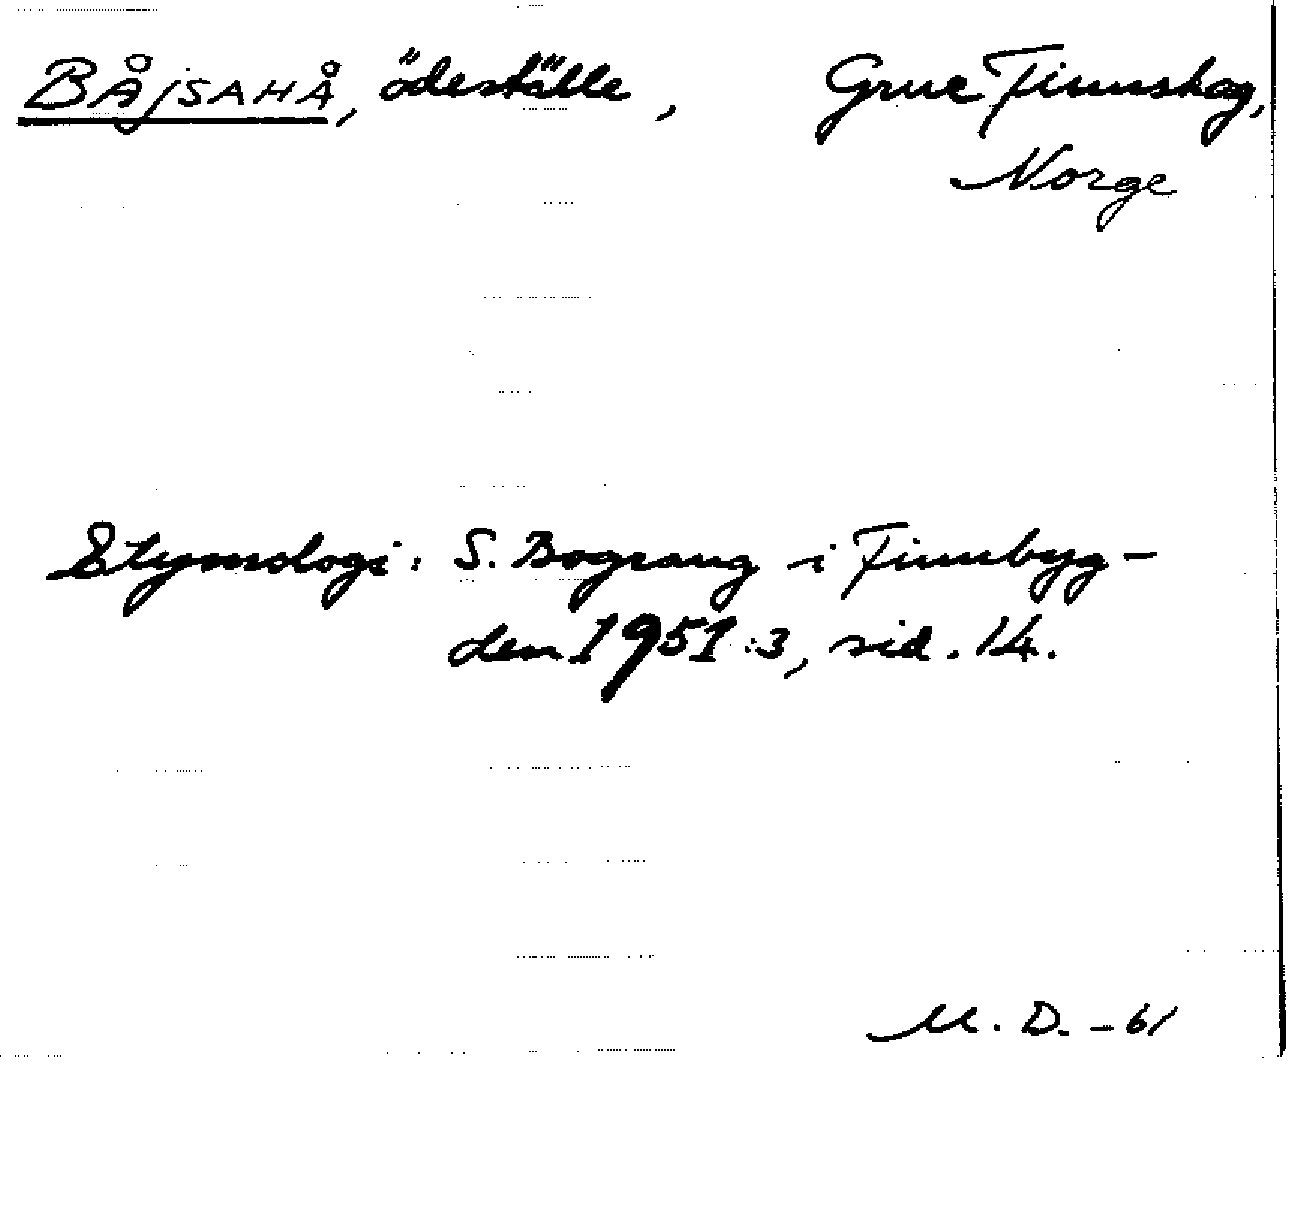 BÅJSAHÅ, ödeställe, Grue Finnskog,
Norge
Etymologi: S. Bograng i Finnbyg-
den 1951:3, sid. 14.
M. D. -61